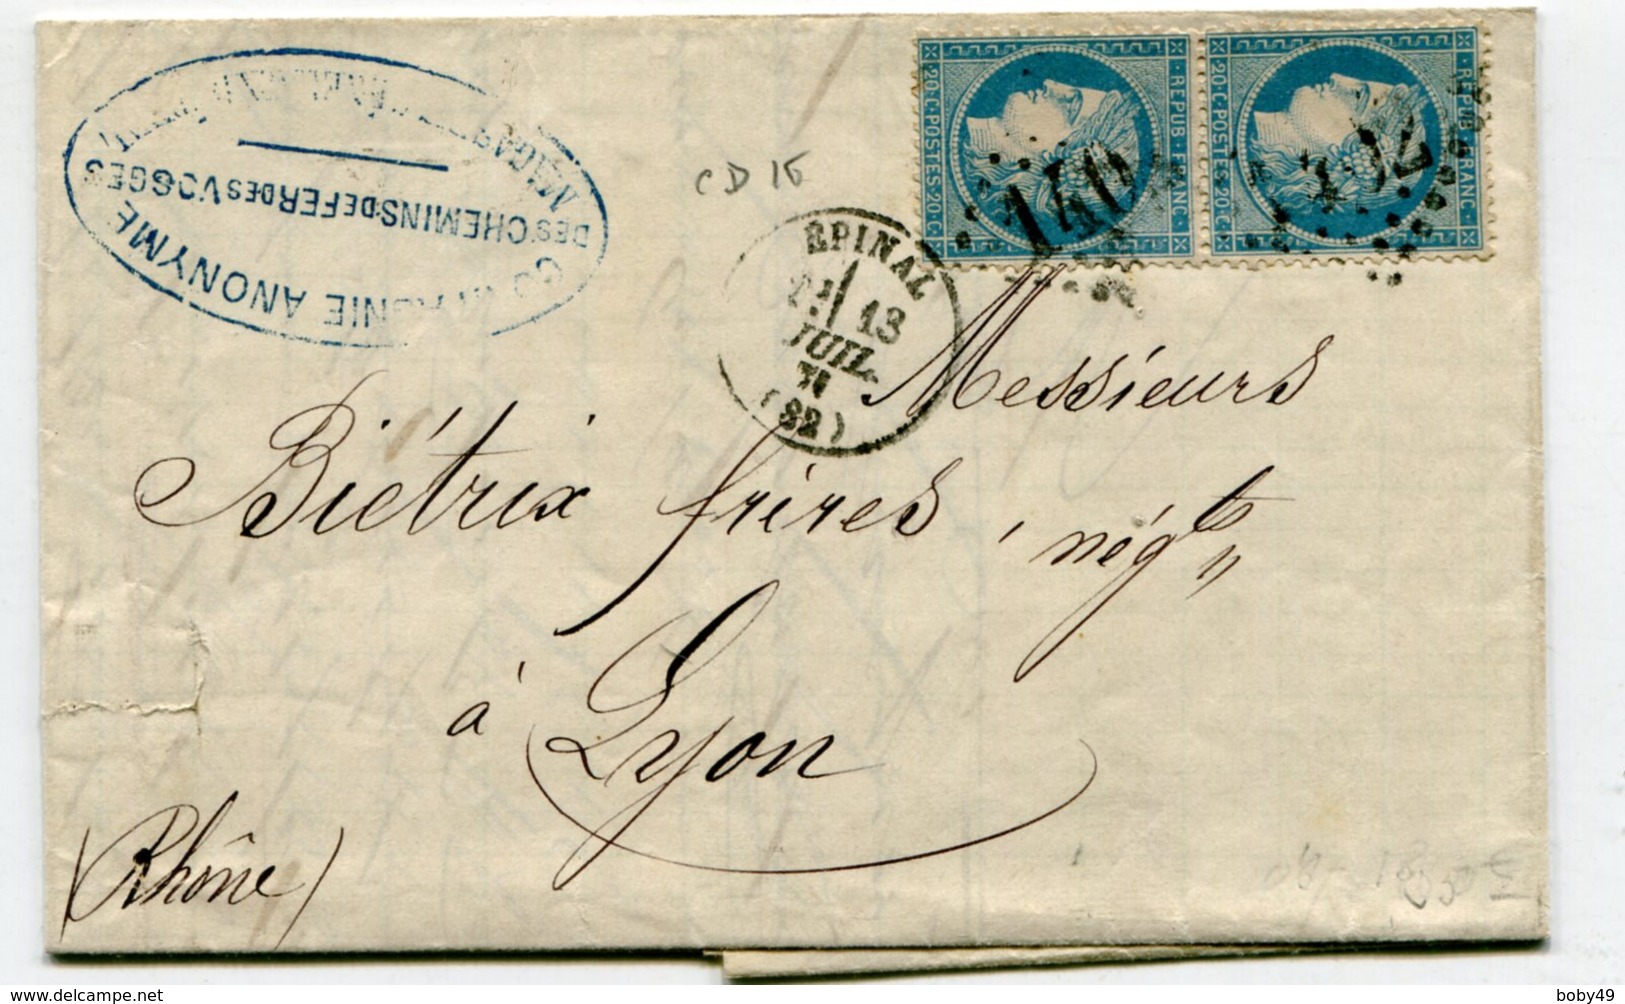 COMPAGNIE ANONYME
DES CHEMINS DE FER DES VOSGES
REPUB. FRANC.
20·C·POSTES·20·C
REPUB. FRANC.
20·C·POSTES·20·C
CD 16
EPINAL
13
JUIL.
71
(82)
Messieurs
Biétrix frères, négts
à Lyon
(Rhône)
delcampe.net
boby49